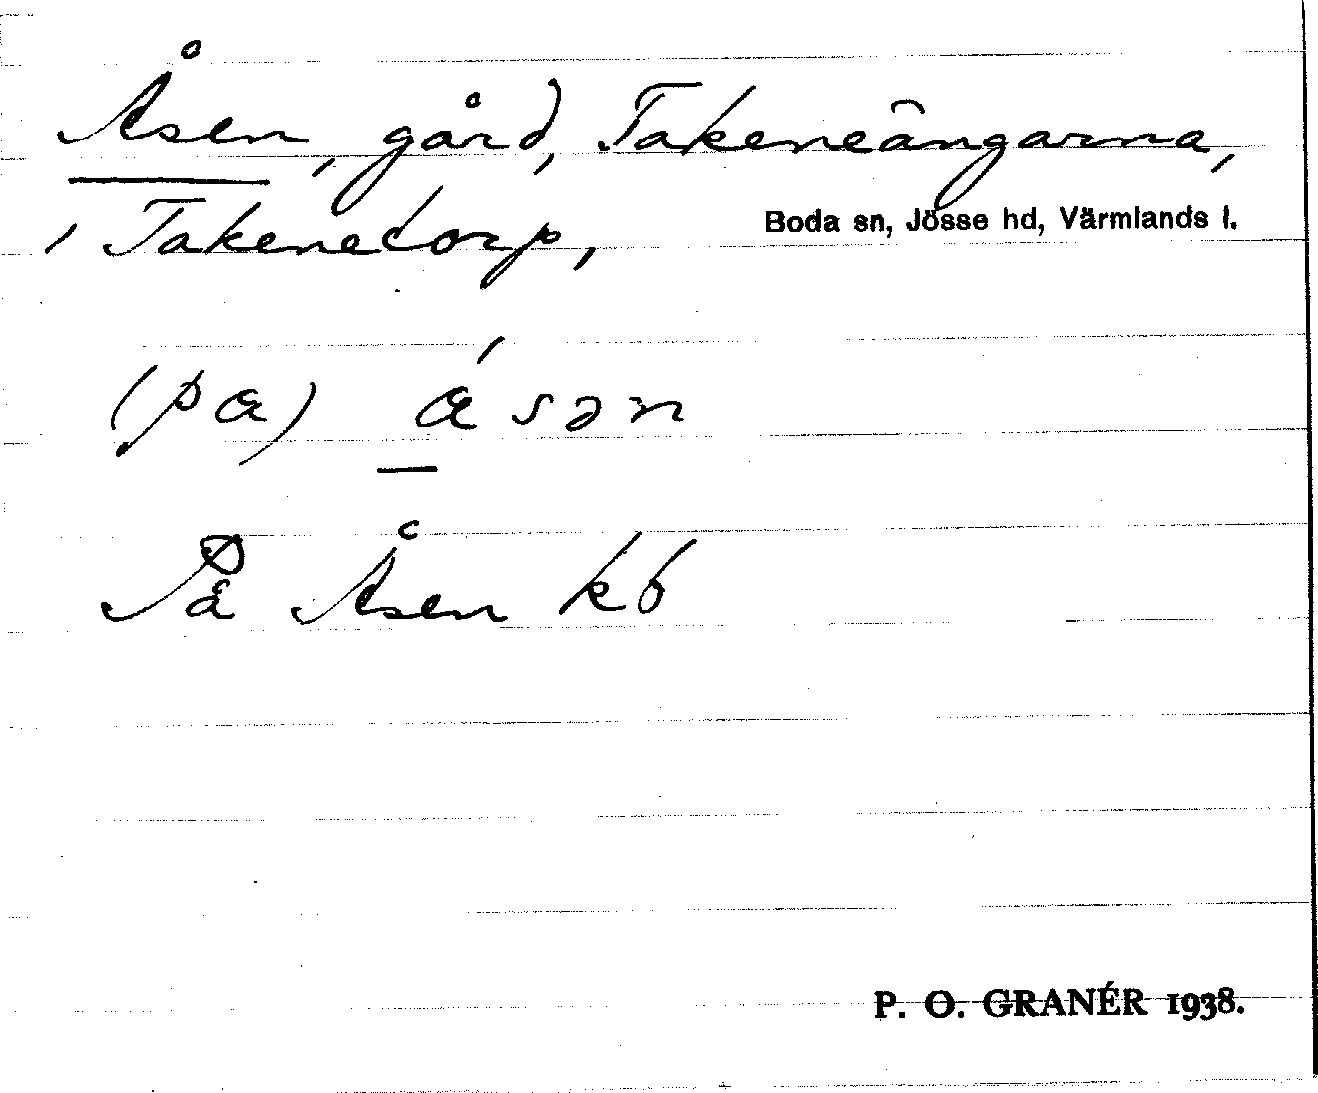 Åsen, gård, Takeneängarna,
i Takenetorp, Boda sn, Jösse hd, Värmlands l.
(på) åsən
På Åsen kb
P. O. GRANÉR 1938.